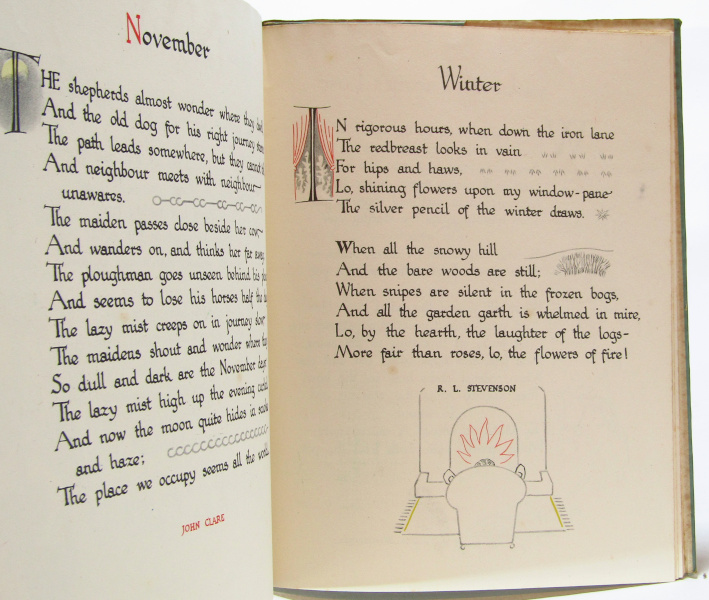 November
THE shepherds almost wonder where they
And the old dog for his right journey
The path leads somewhere, but they cannot
And neighbour meets with neighbour
unawares.
The maiden passes close beside her cow
And wanders on, and thinks her far away
The ploughman goes unseen behind his
And seems to lose his horses half the
The lazy mist creeps on in journey slow
The maidens shout and wonder where
So dull and dark are the November days
The lazy mist high up the evening
And now the moon quite hides in
and haze;
The place we occupy seems all the world
JOHN CLARE
Winter
IN rigorous hours, when down the iron lane
The redbreast looks in vain
For hips and haws,
Lo, shining flowers upon my window-pane
The silver pencil of the winter draws.
When all the snowy hill
And the bare woods are still;
When snipes are silent in the frozen bogs,
And all the garden garth is whelmed in mire,
Lo, by the hearth, the laughter of the logs-
More fair than roses, lo, the flowers of fire!
R. L. STEVENSON